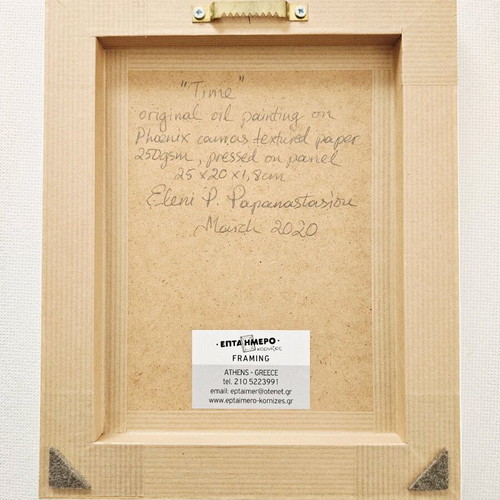 "Time"
original oil painting on
Phoenix canvas textured paper
250gsm, pressed on panel
25 x 20 x 1,8cm
Eleni P. Papanastasiou
March 2020
· ΕΠΤΑΗΜΕΡΟ ·
κορνίζες
FRAMING
ATHENS - GREECE
tel. 210 5223991
email: eptaimer@otenet.gr
www.eptaimero-kornizes.gr